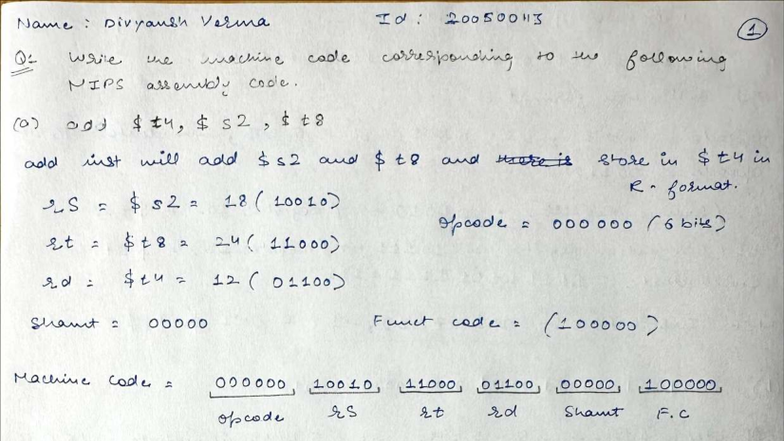 Name : Divyansh Verma Id : 200500113
1
Q1 Write the machine code corresponding to the following
MIPS assembly code.
(a) add $t4, $s2, $t8
add inst will add $s2 and $t8 and there is store in $t4 in
R-format.
rS = $s2 = 18 (10010)
Opcode = 000000 (6 bits)
rt = $t8 = 24 (11000)
rd = $t4 = 12 (01100)
Shamt = 00000 Funct code = (100000)
Machine code = 000000, 10010, 11000, 01100, 00000, 100000,
opcode rS rt rd Shamt F.C